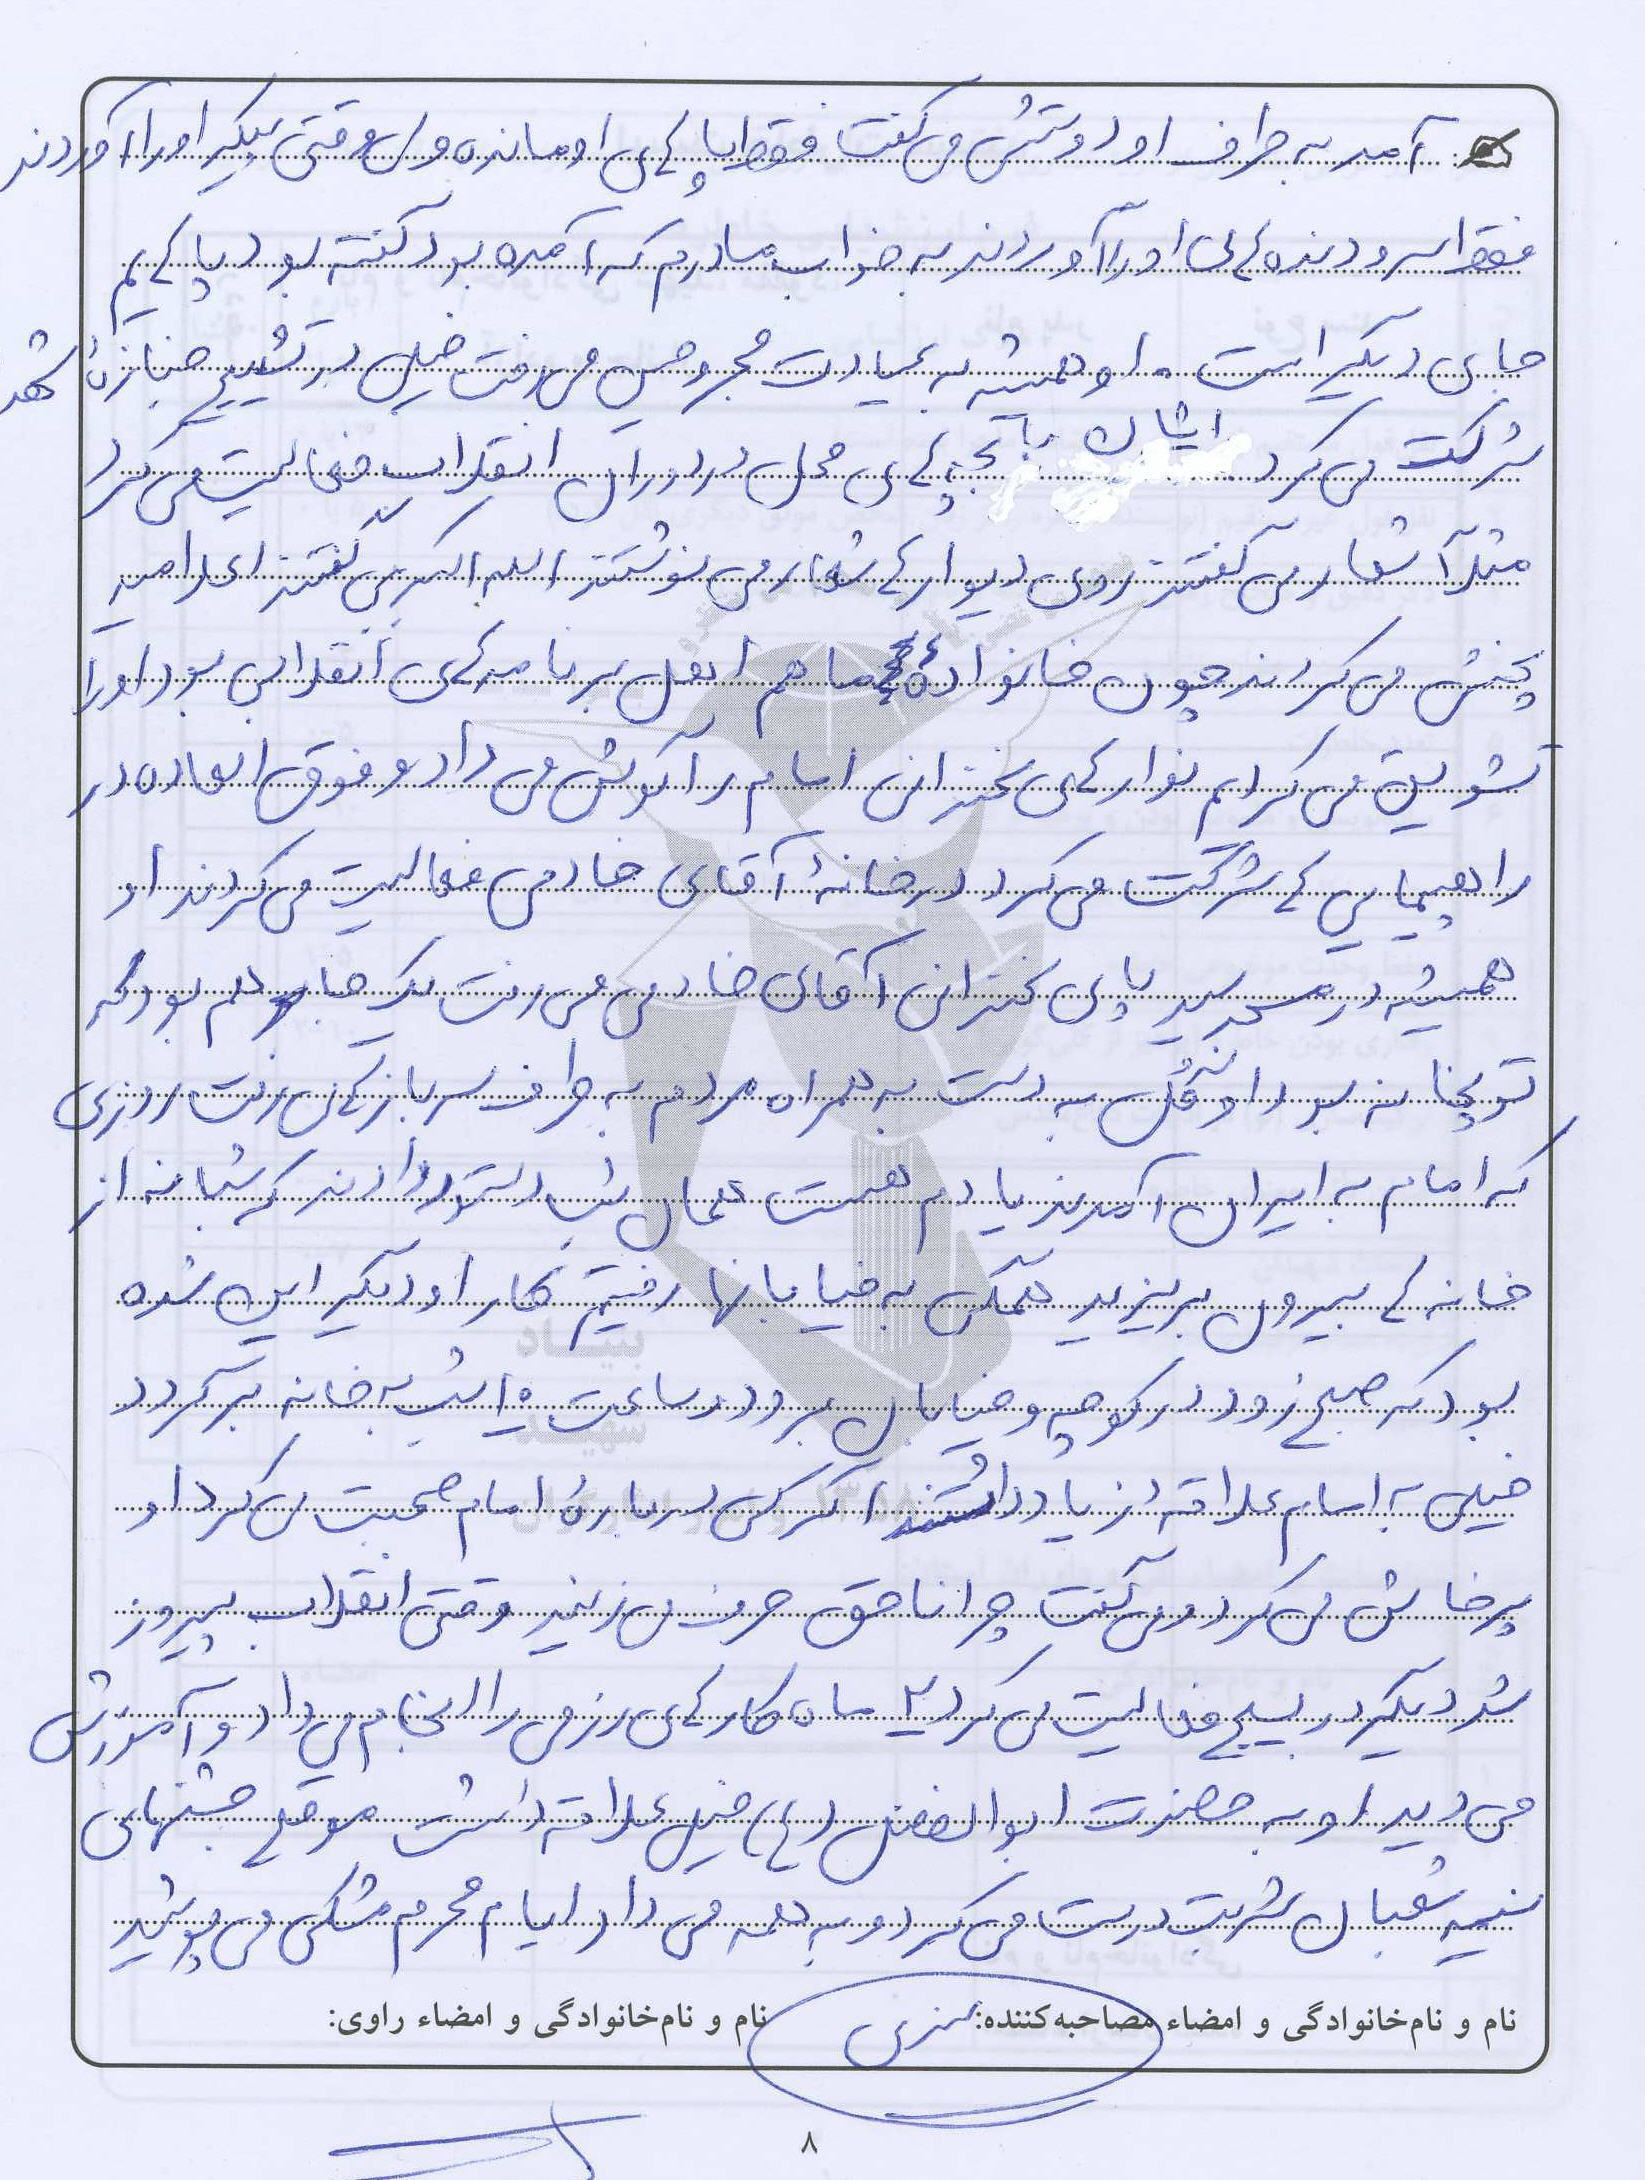 آمد به طرف او دوستش می گفت فقط پاهای او مانده ولی وقتی پیکر او را آوردند
فقط سر و دنده های او را آوردند به خواب مادرم که آمده بود گفته بود پاهایم
جای دیگر است . او همیشه به عیادت مجروحین می رفت خیلی در تشییع جنازهٔ شهدا
شرکت می کرد ایشان با بچه های محل در دوران انقلاب فعالیت می کرد
مثلاً شعار می گفتند روی دیوارها شعار می نوشتند الله اکبر می گفتند اعلامیه
پخش می کردند چون خانوادهٔ ما هم اهل برنامه های انقلابی بود او را
تشویق می کردیم نوارهای سخنرانی امام را گوش می داد و فوق العاده در
راهپیمایی ها شرکت می کرد در خانهٔ آقای خادمی فعالیت می کردند او
همیشه در مسجد سید پای سخنرانی آقای خادمی می رفت یک جا هم بود که
توپخانه بود او گل به دست به همراه مردم به طرف سربازهای رفت روزی
که امام به ایران آمدند یادم هست همان شب دستور دادند که شبانه از
خانه ها بیرون بریزید همگی به خیابانها رفتیم کار او دیگر این شده
بود که صبح زود در کوچه و خیابان برود و ساعت ۱۰ شب به خانه برگردد
خیلی به امام علاقهٔ زیاد داشتند اگر کسی دربارهٔ امام صحبت می کرد او
پرخاش می کرد و می گفت چرا ناحق حرف می زنید وقتی انقلاب پیروز
شد دیگر در بسیج فعالیت می کرد ۲ ماه کارهای رزمی را انجام می داد و آموزش
می دید او به حضرت ابوالفضل (ع) خیلی علاقه داشت موقع جشنهای
نیمه شعبان شربت درست می کرد و به همه می داد ایام محرم مشکی می پوشید
نام و نام‌خانوادگی و امضاء مصاحبه‌کننده:
نام و نام‌خانوادگی و امضاء راوی:
۸